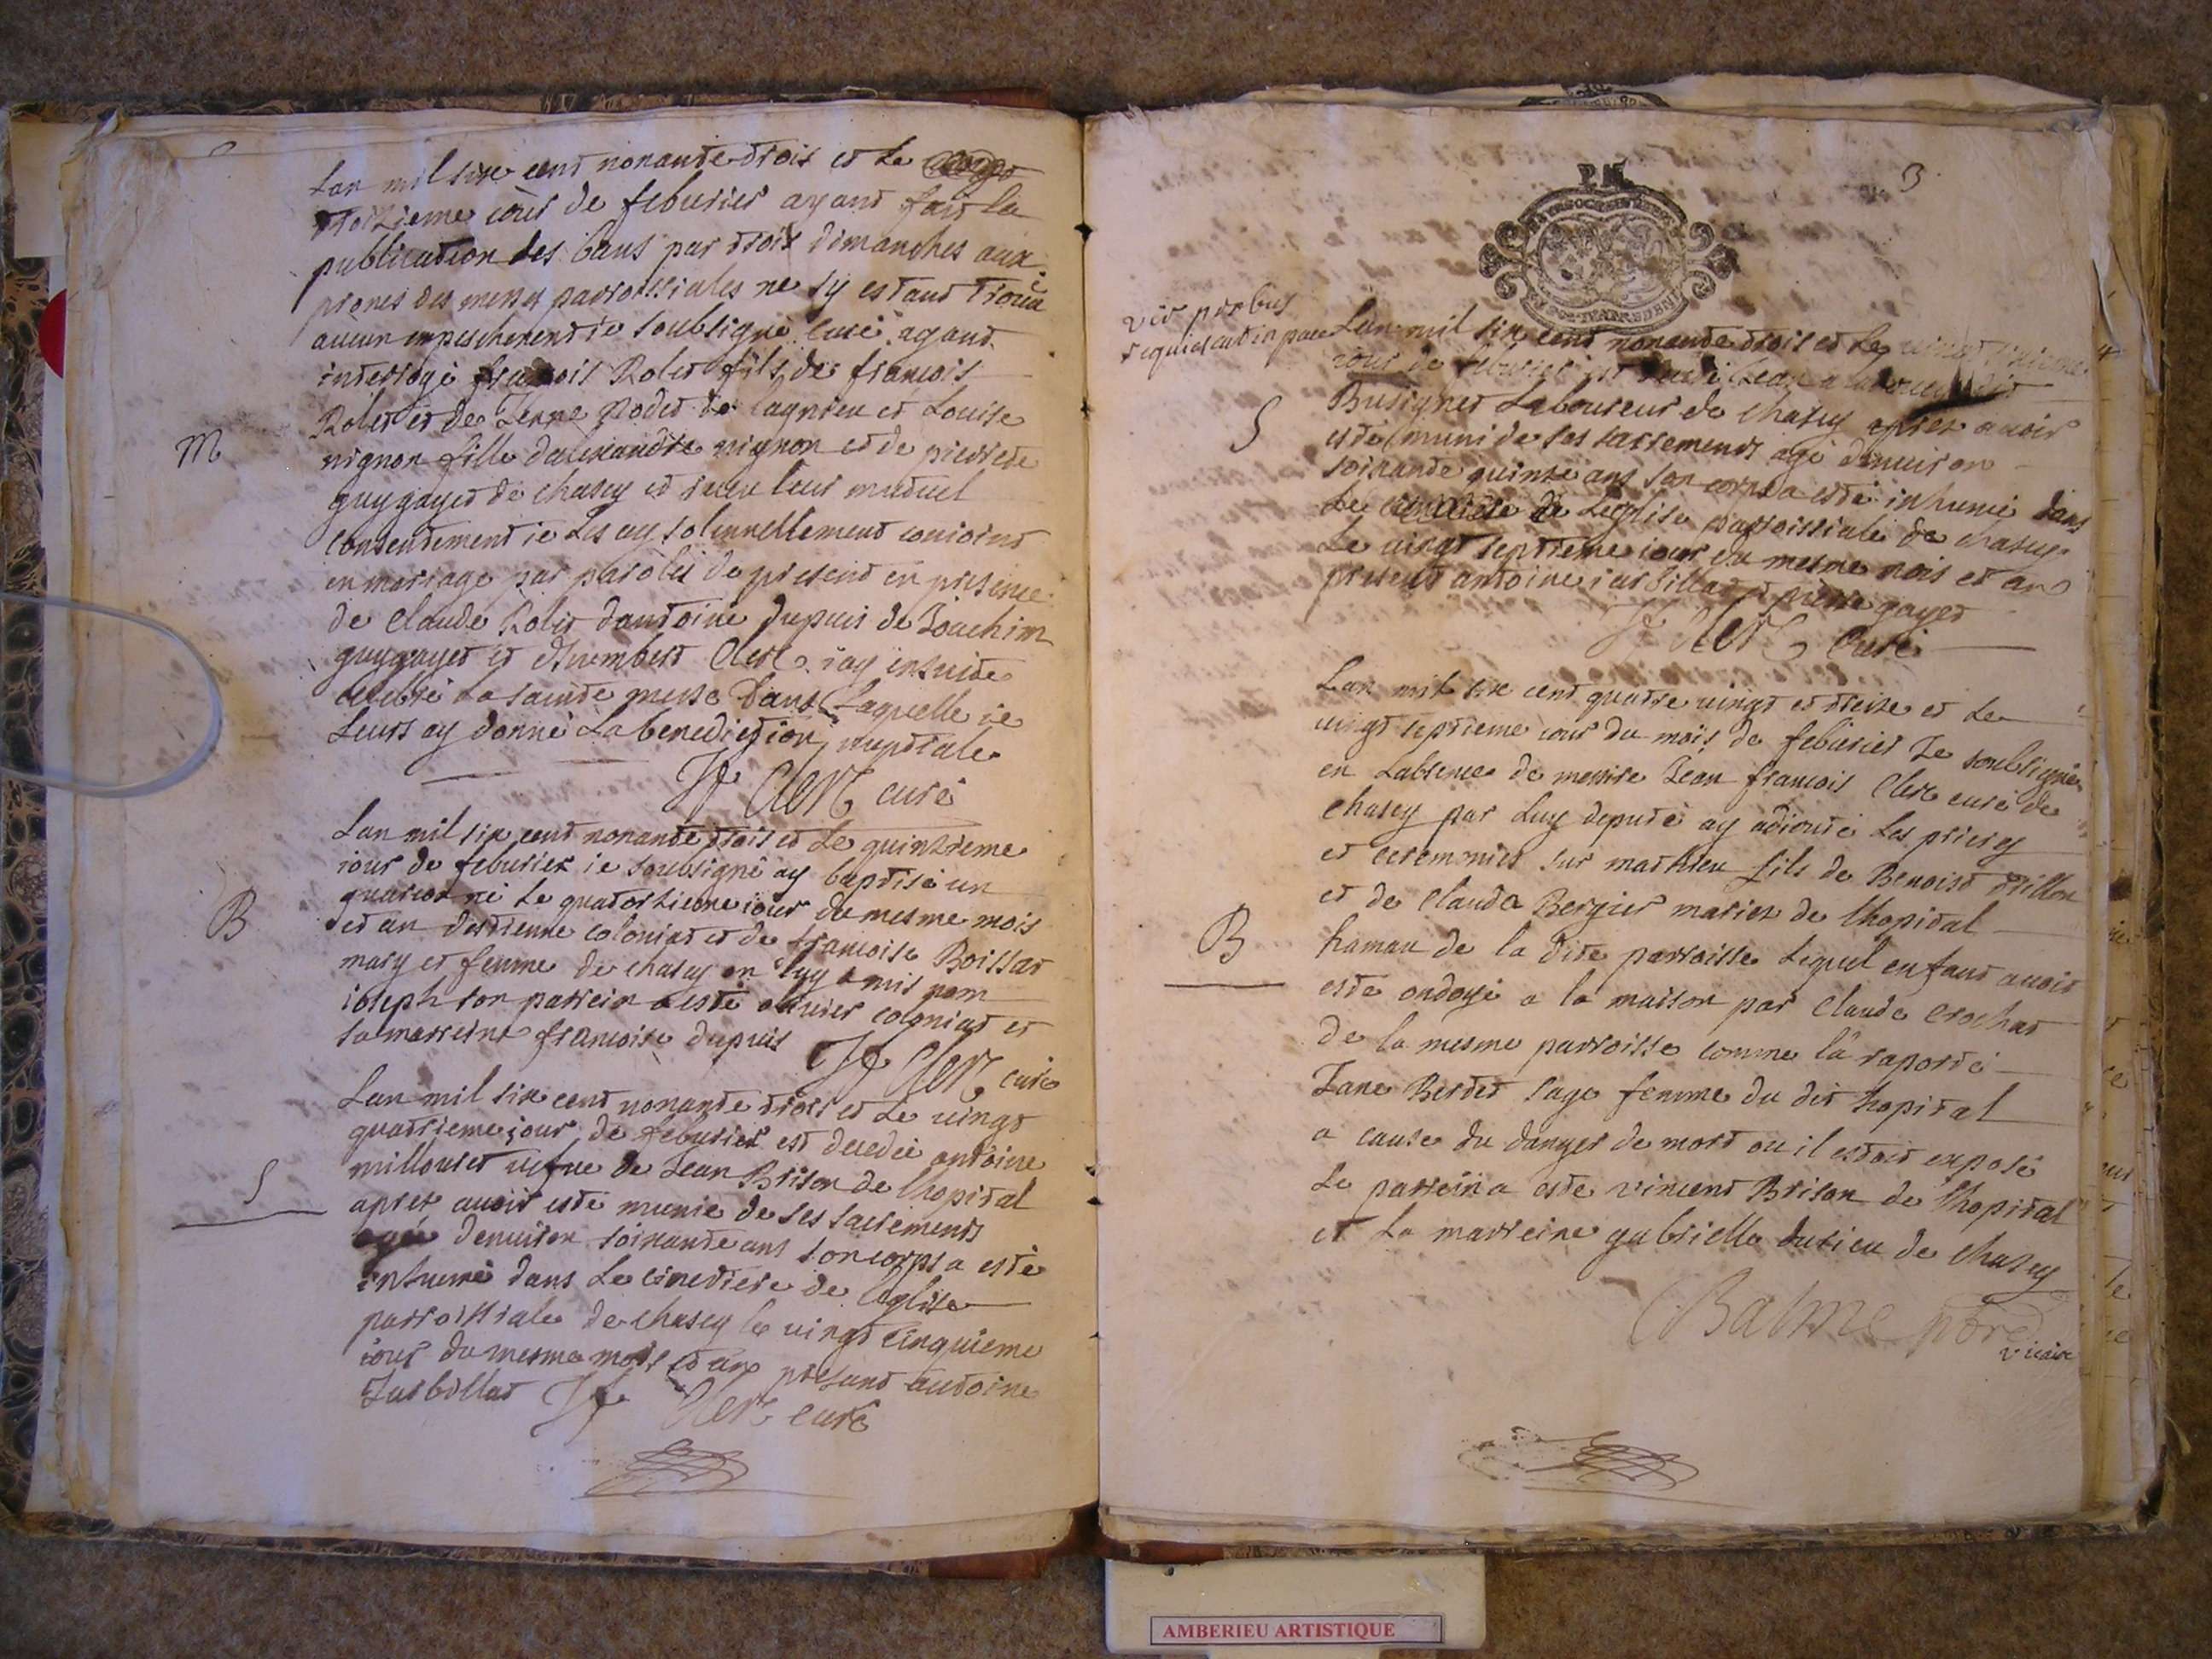 Lan mil sixe cent nonante trois et le
troizieme iour de feburier ayant fait la
publication des bans par trois dimanches aux
prones des messes parroissiales ne sy estant trouvé
aucun empeschement ie soubsigné curé ayant
interrogé francois Rolet fils de francois
Rolet et de Jenne Rodet de lagnieu et Louise
vignon fille dalexandre vignon et de pierrete
M
guygayet de chasey et receu leur mutuel
consentement ie les ay solennellement conioint
en mariage par paroles de present en presence
de Claude Rolet dantoine dupuis de Joachim
guygayet et dhumbert Clerc iay ensuide
celebré la sainte messe dans laquelle ie
leurs ay donné la benediction nuptiale
Jf Clerc curé
Lan mil six cent nonante trois et le quinzieme
iour de feburier ie soubsigné ay baptisé un
garcon né le quatorzieme iour du mesme mois
B
et an destienne coloniat et de francoise Boissat
mary et femme de chasey on luy a mis nom
ioseph son parrein a esté olivier cologniat et
sa marreine francoise dupuis
Jf Clerc curé
Lan mil six cent nonante trois et le vingt
quatrieme iour de feburier est decedée antoine
millouret vefve de Jean Brison de lhopital
S
aprez avoir esté munie de ses sacrements
agée denuiron soixante ans son corps a esté
inhumé dans le cimetiere de leglise
parroissiale de chasey le vingt cinquieme
iour du mesme mois et an present antoine
Jarbillat Jf Clerc curé
P.M.
3
vir probus
requiescat in pace
Lan mil six cent nonante trois et le vingt sixieme
iour de feburier est decedé Jean
S
Busignet Laboureur de Chasey aprez avoir
esté muni de ses sacrements agé denuiron
soixante quinze ans son corps a esté inhumé dans
le cimetiere de leglise parroissiale de chasey
le vingt septieme iour du mesme mois et an
present antoine iarbillat et pierre gayet
Jf Clerc Curé
Lan mil six cent quatre vingt et treize et le
vingt septieme iour du mois de feburier Je soubsigné
en labsence de messire Jean francois Clerc curé de
Chasey par luy deputé ay adiouté les prieres
et ceremonies sur mathieu fils de Benoist trillon
et de Clauda Bergier mariez de lhopital
B
hamau de la dite parroisse lequel enfant avoit
esté ondoyé a la maison par Claude Crochat
de la mesme parroisse comme la raporté
Jane Bertet sage femme du dit hopital
a cause du danger de mort ou il estoit exposé
Le parrein a esté vincent Brison de lhopital
et la marreine gabrielle dutieu de chasey
Balme pbre
vicaire
AMBERIEU ARTISTIQUE